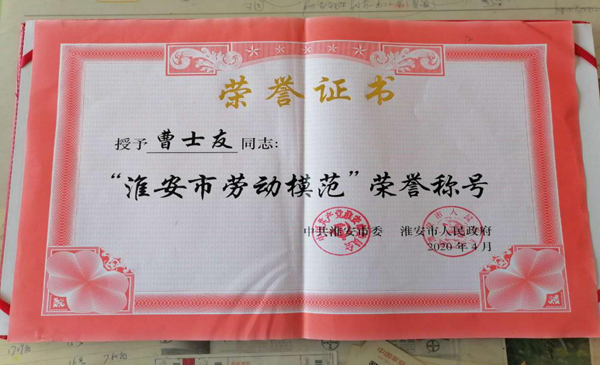 荣誉证书
授予 曹士友 同志:
“淮安市劳动模范”荣誉称号
中共淮安市委 淮安市人民政府
2020年4月